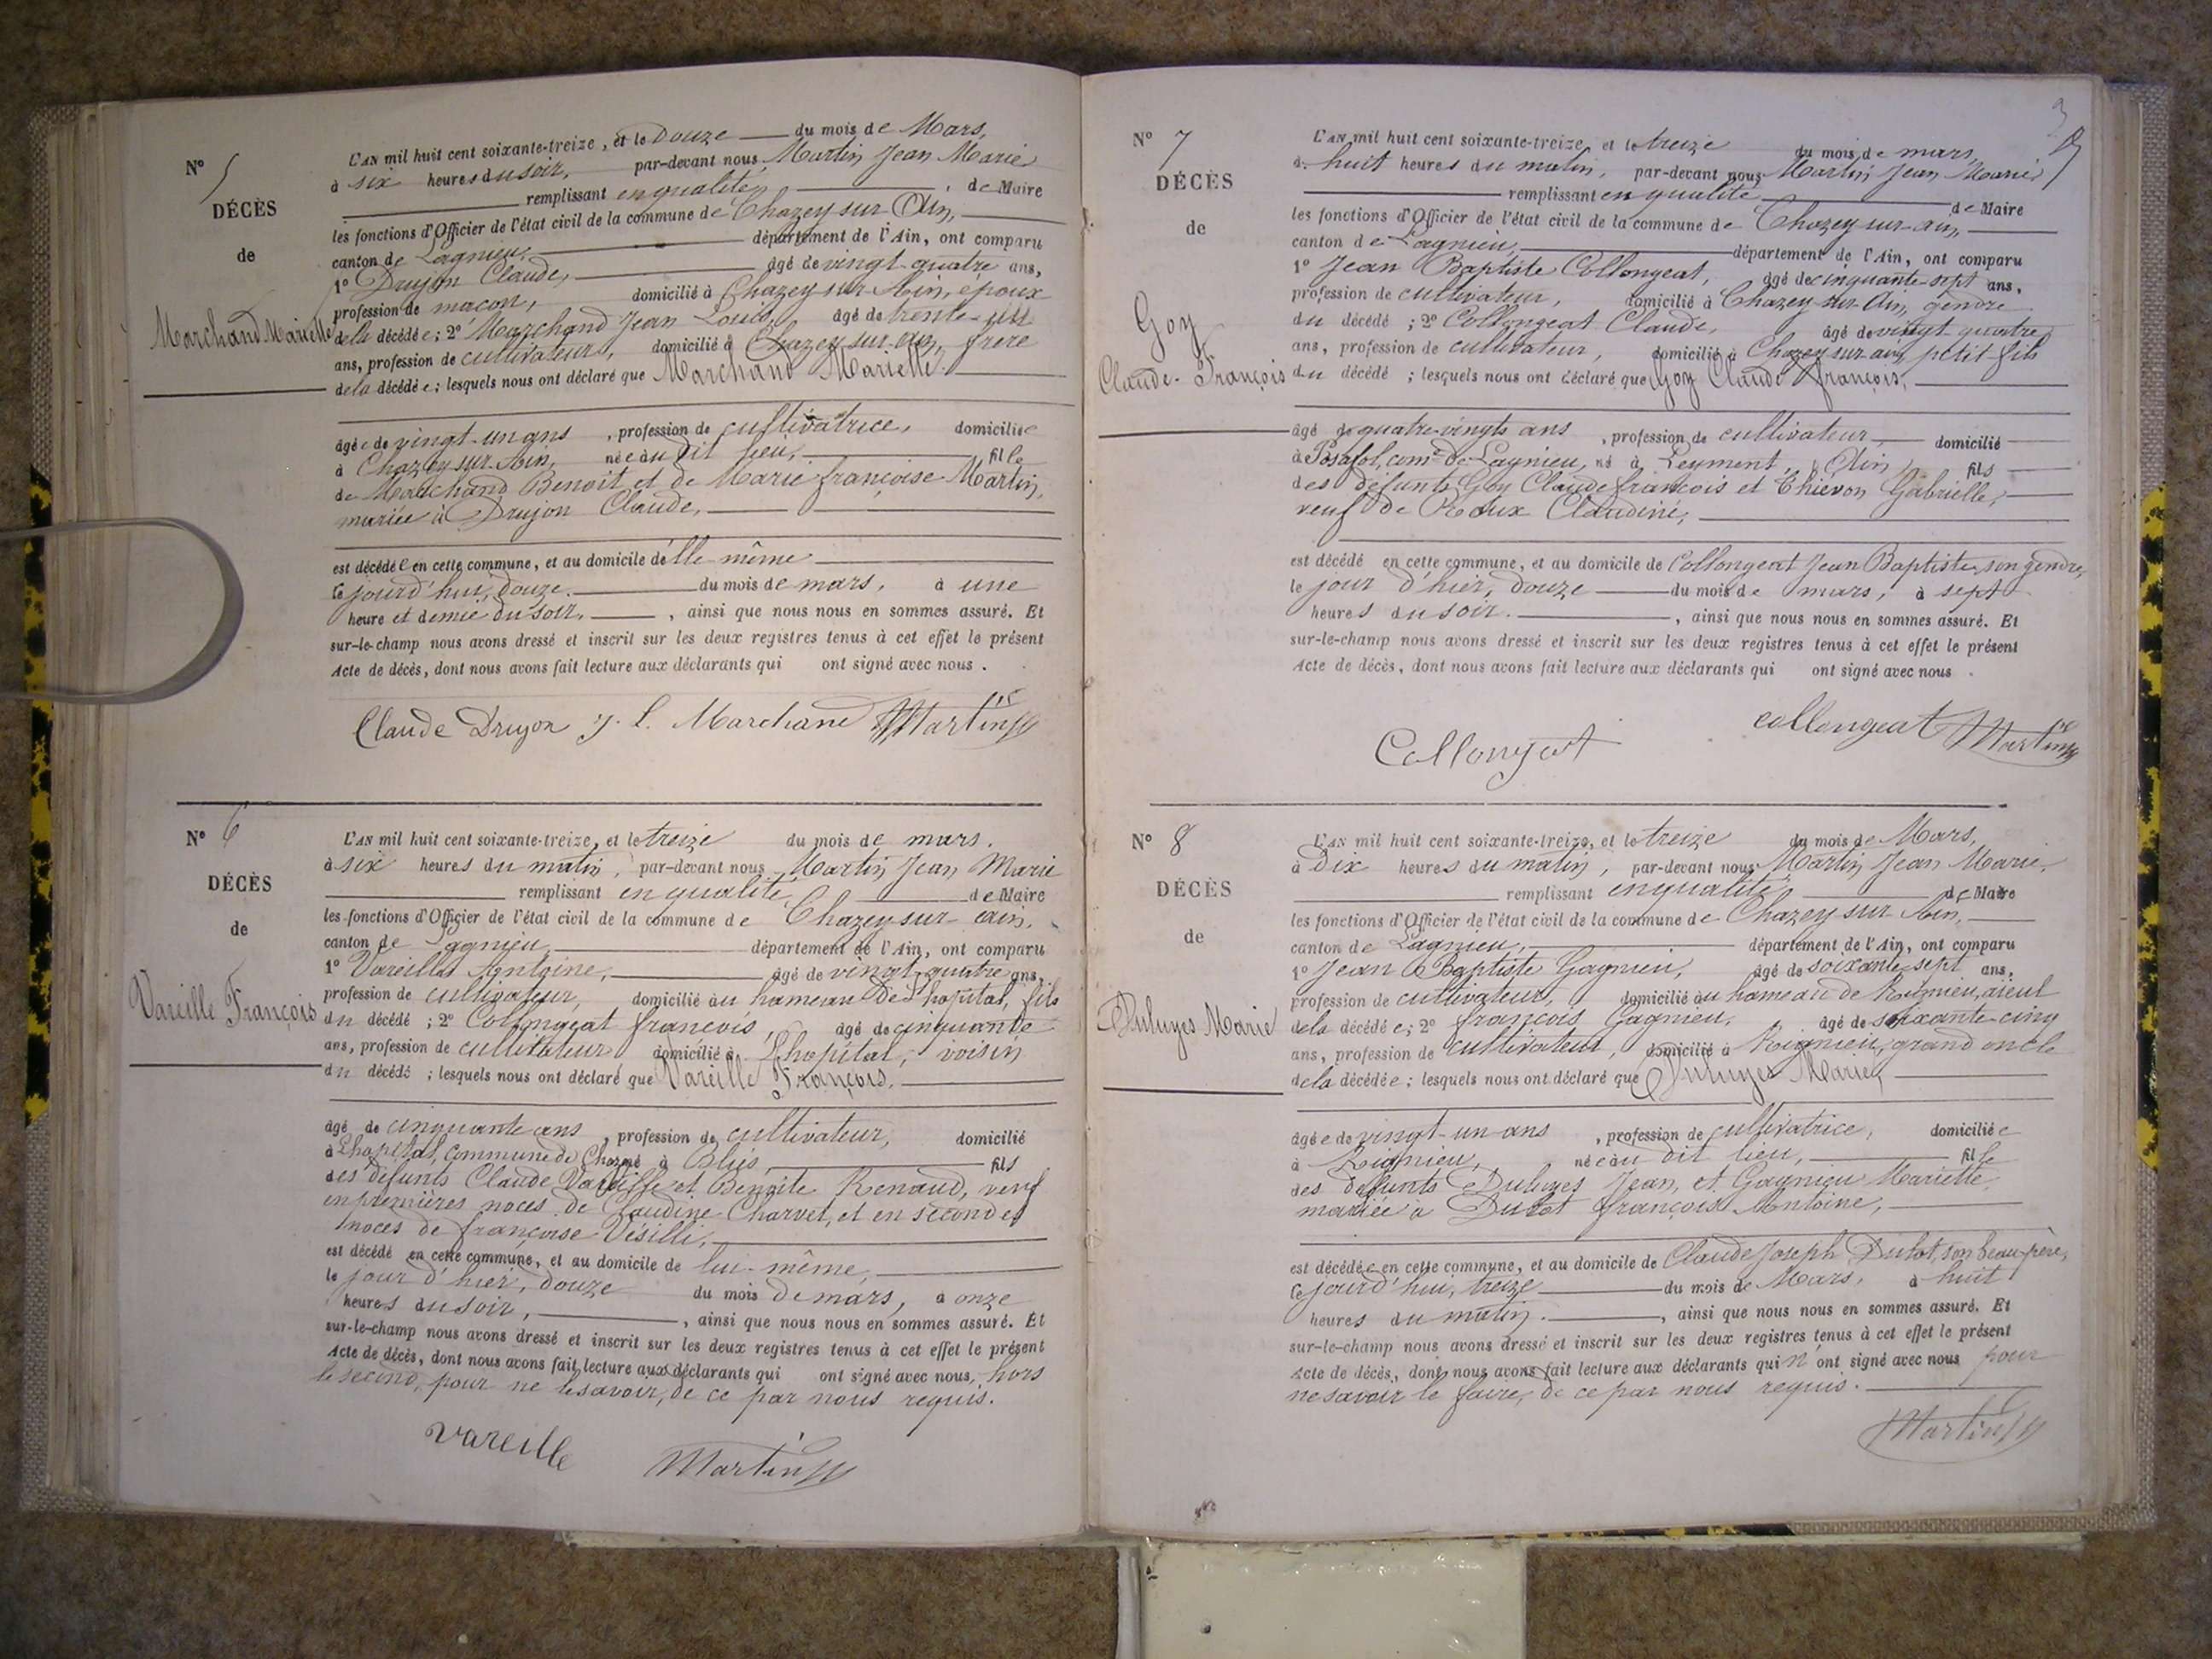 N° 5
DÉCÈS
de
Marchand Mariette
L'AN mil huit cent soixante-treize, et le Douze du mois de Mars,
à six heures du soir, par-devant nous Martin Jean Marie
remplissant en qualité de Maire
les fonctions d'Officier de l'état civil de la commune de Chazey sur Ain,
canton de Lagnieu, département de l'Ain, ont comparu
1° Drujon Claude, âgé de vingt-quatre ans,
profession de maçon, domicilié à Chazey sur Ain, époux
de la décédée; 2° Marchand Jean Louis, âgé de trente-un
ans, profession de cultivateur, domicilié à Chazey sur Ain, frère
de la décédée; lesquels nous ont déclaré que Marchand Mariette
âgée de vingt-un ans, profession de cultivatrice, domiciliée
à Chazey sur Ain, née au dit lieu, fille
de Marchand Benoit et de Marie françoise Martin,
mariée à Drujon Claude,
est décédée en cette commune, et au domicile d'elle même
ce jourd'hui, douze du mois de mars, à une
heure et demie du soir, ainsi que nous nous en sommes assuré. Et
sur-le-champ nous avons dressé et inscrit sur les deux registres tenus à cet effet le présent
Acte de décès, dont nous avons fait lecture aux déclarants qui ont signé avec nous.
Claude Drujon J. L. Marchand Martin
N° 6
DÉCÈS
de
Vareille François
L'AN mil huit cent soixante-treize, et le treize du mois de mars,
à six heures du matin, par-devant nous Martin Jean Marie
remplissant en qualité de Maire
les fonctions d'Officier de l'état civil de la commune de Chazey sur ain,
canton de Lagnieu, département de l'Ain, ont comparu
1° Vareille Antoine, âgé de vingt-quatre ans,
profession de cultivateur, domicilié au hameau de L'hopital, fils
du décédé; 2° Collongeat françois, âgé de cinquante
ans, profession de cultivateur domicilié à L'hopital, voisin
du décédé; lesquels nous ont déclaré que Vareille François,
âgé de cinquante ans, profession de cultivateur, domicilié
à L'hopital, commune de Chazey né à Blies, fils
des défunts Claude Vareille et Benoite Renaud, veuf
en premières noces de Claudine Charvet, et en secondes
noces de françoise Vésilli,
est décédé en cette commune, et au domicile de lui-même,
le jour d'hier, douze du mois de mars, à onze
heures du soir, ainsi que nous nous en sommes assuré. Et
sur-le-champ nous avons dressé et inscrit sur les deux registres tenus à cet effet le présent
Acte de décès, dont nous avons fait lecture aux déclarants qui ont signé avec nous, hors
le second, pour ne le savoir, de ce par nous requis.
vareille Martin
3
N° 7
DÉCÈS
de
Goy
Claude-François
L'AN mil huit cent soixante-treize, et le treize du mois de mars,
à huit heures du matin, par-devant nous Martin Jean Marie
remplissant en qualité de Maire
les fonctions d'Officier de l'état civil de la commune de Chazey sur ain,
canton de Lagnieu, département de l'Ain, ont comparu
1° Jean Baptiste Collongeat, âgé de cinquante-sept ans,
profession de cultivateur, domicilié à Chazey sur Ain, gendre
du décédé; 2° Collongeat Claude, âgé de vingt quatre
ans, profession de cultivateur, domicilié à Chazey sur ain, petit fils
du décédé; lesquels nous ont déclaré que Goy Claude françois,
âgé de quatre-vingts ans, profession de cultivateur, domicilié
à Posafol, com.ne de Lagnieu, né à Leyment, Ain, fils
des défunts Goy Claude françois et Thievon Gabrielle,
veuf de Roux Claudine,
est décédé en cette commune, et au domicile de Collongeat Jean Baptiste, son gendre,
le jour d'hier, douze du mois de mars, à sept
heures du soir, ainsi que nous nous en sommes assuré. Et
sur-le-champ nous avons dressé et inscrit sur les deux registres tenus à cet effet le présent
Acte de décès, dont nous avons fait lecture aux déclarants qui ont signé avec nous.
Collongeat collongeat Martin
N° 8
DÉCÈS
de
Duluyes Marie
L'AN mil huit cent soixante-treize, et le treize du mois de Mars,
à Dix heures du matin, par-devant nous Martin Jean Marie,
remplissant en qualité de Maire
les fonctions d'Officier de l'état civil de la commune de Chazey sur Ain,
canton de Lagnieu, département de l'Ain, ont comparu
1° Jean Baptiste Gagnieu, âgé de soixante-sept ans,
profession de cultivateur, domicilié au hameau de Rignieu, aïeul
de la décédée; 2° françois Gagnieu, âgé de soixante-cinq
ans, profession de cultivateur, domicilié à Rignieu, grand oncle
de la décédée; lesquels nous ont déclaré que Duluyes Marie,
âgée de vingt-un ans, profession de cultivatrice, domiciliée
à Rignieu, née au dit lieu, fille
des défunts Duluyes Jean, et Gagnieu Mariette
mariée à Dubot françois Antoine,
est décédée en cette commune, et au domicile de Claude Joseph Dubot, son beau-père,
ce jourd'hui, treize du mois de Mars, à huit
heures du matin, ainsi que nous nous en sommes assuré. Et
sur-le-champ nous avons dressé et inscrit sur les deux registres tenus à cet effet le présent
Acte de décès, dont nous avons fait lecture aux déclarants qui n'ont signé avec nous pour
ne savoir le faire, de ce par nous requis.
Martin